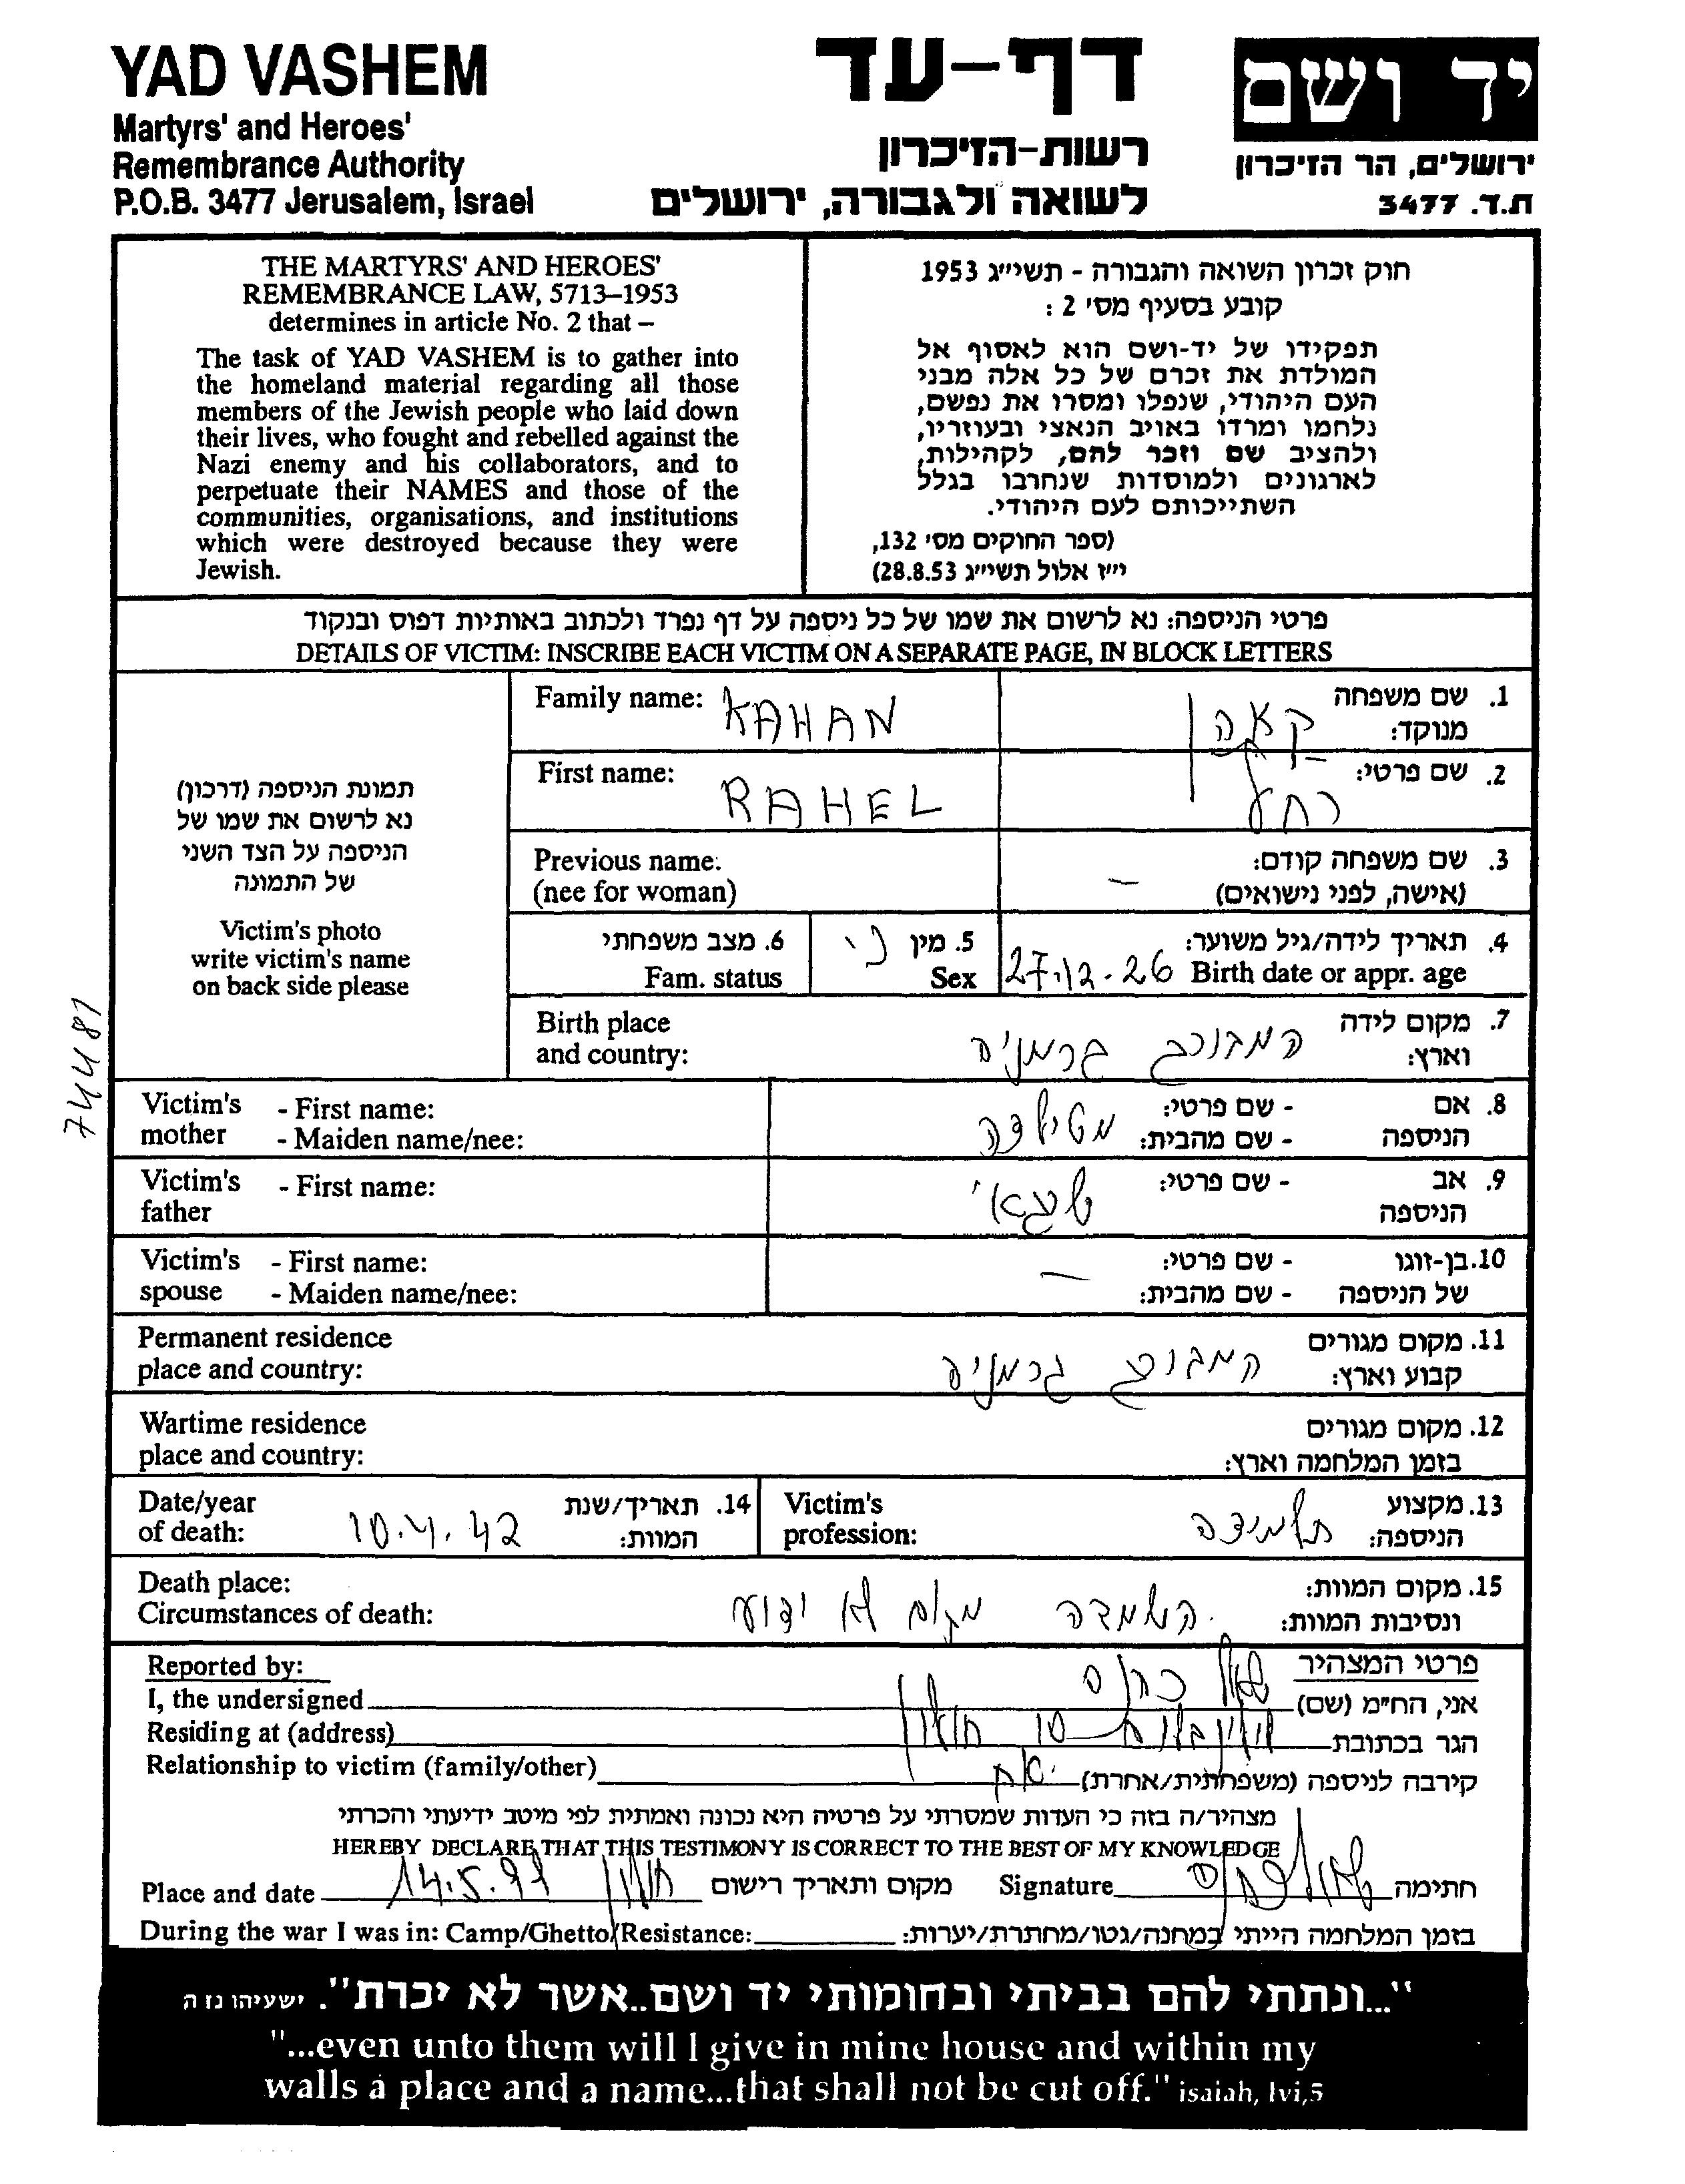 YAD VASHEM
Martyrs' and Heroes'
Remembrance Authority
P.O.B. 3477 Jerusalem, Israel
דף-עד
רשות-הזיכרון
לשואה ולגבורה, ירושלים
יד ושם
ירושלים, הר הזיכרון
ת.ד. 3477
THE MARTYRS' AND HEROES'
REMEMBRANCE LAW, 5713–1953
determines in article No. 2 that –
The task of YAD VASHEM is to gather into
the homeland material regarding all those
members of the Jewish people who laid down
their lives, who fought and rebelled against the
Nazi enemy and his collaborators, and to
perpetuate their NAMES and those of the
communities, organisations, and institutions
which were destroyed because they were
Jewish.
חוק זכרון השואה והגבורה - תשי״ג 1953
קובע בסעיף מס' 2 :
תפקידו של יד-ושם הוא לאסוף אל
המולדת את זכרם של כל אלה מבני
העם היהודי, שנפלו ומסרו את נפשם,
נלחמו ומרדו באויב הנאצי ובעוזריו,
ולהציב שם וזכר להם, לקהילות,
לארגונים ולמוסדות שנחרבו בגלל
השתייכותם לעם היהודי.
(ספר החוקים מס' 132,
י״ז אלול תשי״ג 28.8.53)
פרטי הניספה: נא לרשום את שמו של כל ניספה על דף נפרד ולכתוב באותיות דפוס ובנקוד
DETAILS OF VICTIM: INSCRIBE EACH VICTIM ON A SEPARATE PAGE, IN BLOCK LETTERS
תמונת הניספה (דרכון)
נא לרשום את שמו של
הניספה על הצד השני
של התמונה
Victim's photo
write victim's name
on back side please
Family name: KAHAN
1. שם משפחה
מנוקד: קאהן
First name: RAHEL
2. שם פרטי: רחל
Previous name:
(nee for woman)
3. שם משפחה קודם: –
(אישה, לפני נישואים)
6. מצב משפחתי
Fam. status
5. מין נ'
Sex
4. תאריך לידה/גיל משוער:
27.12.26 Birth date or appr. age
Birth place
and country:
7. מקום לידה
וארץ: המבורג גרמניה
74481
Victim's - First name:
mother - Maiden name/nee:
8. אם - שם פרטי: מטילדה
הניספה - שם מהבית:
Victim's - First name:
father
9. אב - שם פרטי:
הניספה
Victim's - First name:
spouse - Maiden name/nee:
10. בן-זוגו - שם פרטי: –
של הניספה - שם מהבית:
Permanent residence
place and country:
11. מקום מגורים
קבוע וארץ: המבורג גרמניה
Wartime residence
place and country:
12. מקום מגורים
בזמן המלחמה וארץ:
Date/year
of death: 10.4.42
14. תאריך/שנת
המוות:
Victim's
profession:
13. מקצוע
הניספה: תלמידה
Death place:
Circumstances of death:
15. מקום המוות:
ונסיבות המוות: השמדה מקום לא ידוע
Reported by:
I, the undersigned
Residing at (address)
Relationship to victim (family/other)
פרטי המצהיר
אני, החי״מ (שם) שאול
הגר בכתובת חולון
קירבה לניספה (משפחתית/אחרת)
מצהיר/ה בזה כי העדות שמסרתי על פרטיה היא נכונה ואמתית לפי מיטב ידיעתי והכרתי
HEREBY DECLARE THAT THIS TESTIMONY IS CORRECT TO THE BEST OF MY KNOWLEDGE
Place and date 14.5.99 חולון מקום ותאריך רישום Signature חתימה
During the war I was in: Camp/Ghetto/Resistance: בזמן המלחמה הייתי במחנה/גטו/מחתרת/יערות:
"...ונתתי להם בביתי ובחומותי יד ושם..אשר לא יכרת". ישעיהו נז ה
"...even unto them will I give in mine house and within my
walls a place and a name...that shall not be cut off." isaiah, lvi,5